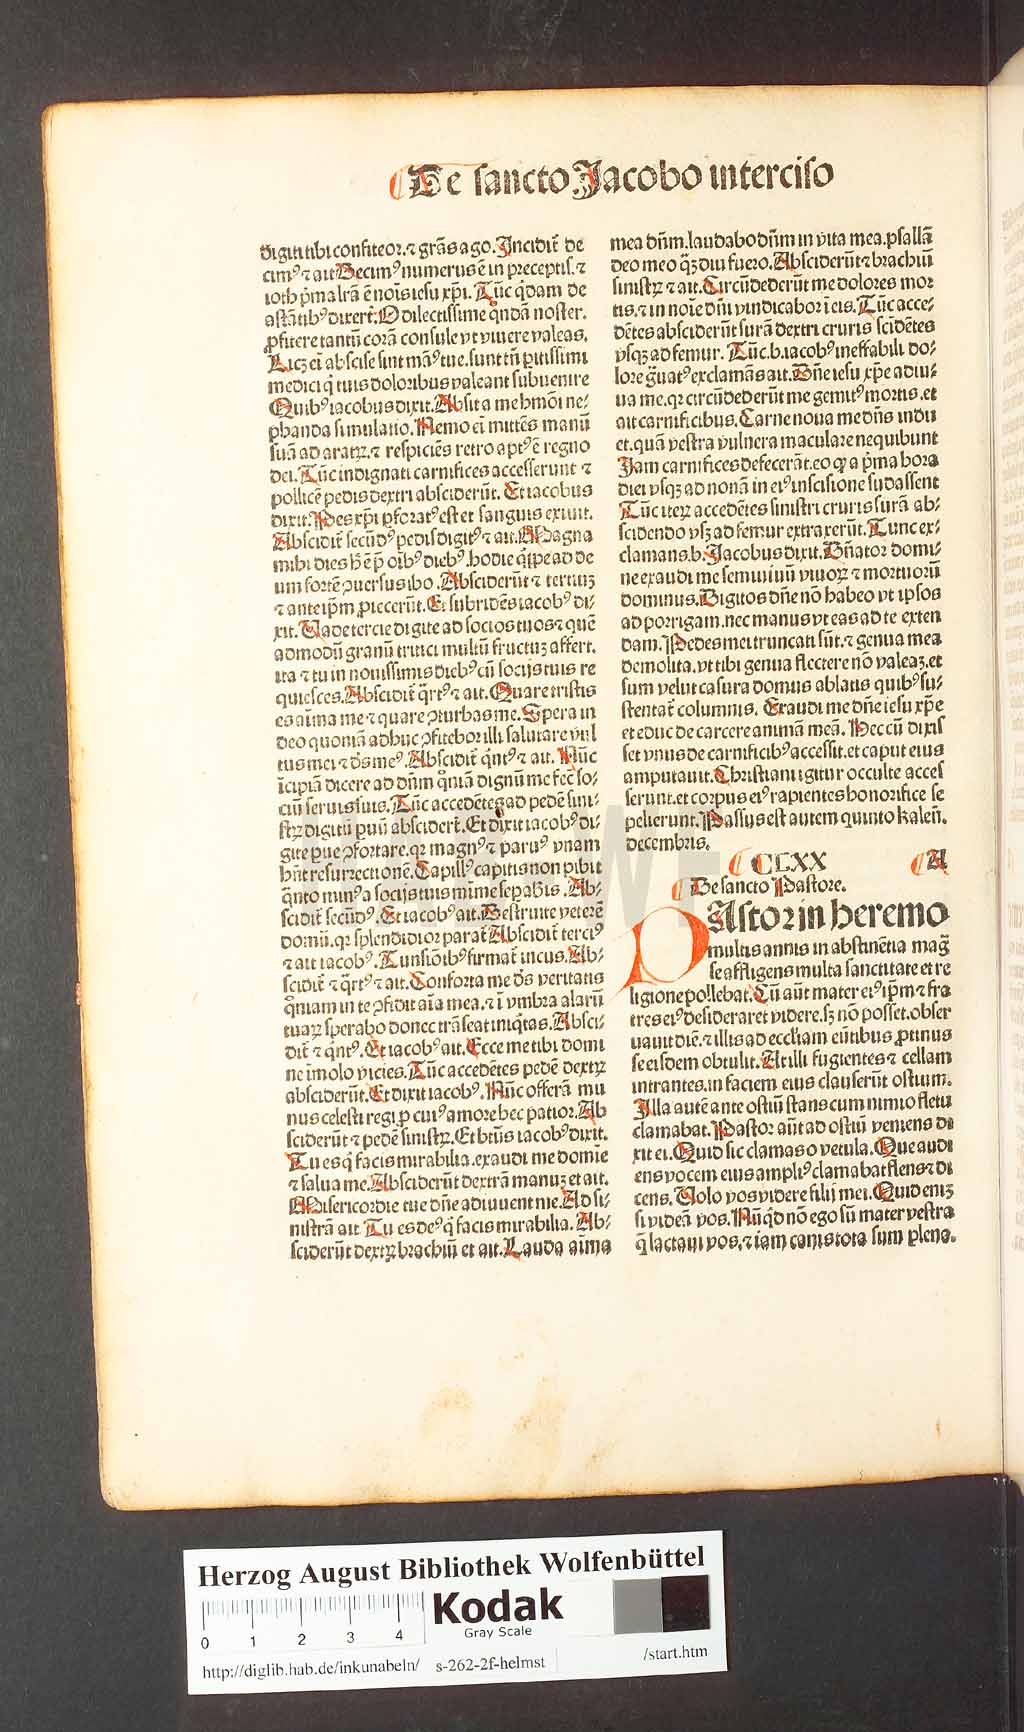 De sancto Jacobo interciso
digiti tibi confiteor. ⁊ grãs ago. Incidit̃ de
cimꝰ ⁊ ait Decimꝰ numerus ẽ in preceptis. ⁊
ioth p̃ma lr̃a ẽ nois̃ iesu xp̃i. Tũc q̃dam de
astãtibꝰ dixert̃. O dilectissime q̃ndã noster.
ꝓfitere tantũ corã consule vt viuere valeas.
Licꝫ em̃ abscise sint manꝰ tue. sunt tñ ꝑitissimi
medici q̃ tuis doloribus valeant subuenire
Quibꝰ iacobus dixit. Absit a me hmõi ne⸗
phanda simulatio. Nemo em̃ mittẽs manũ
suã ad aratꝝ. ⁊ respiciẽs retro aptꝰ ẽ regno
dei. Tũc indignati carnifices accesserunt ⁊
pollicẽ pedis dextri absciderũt. Et iacobus
dixit. Pes xp̃i ꝑforatꝰ est et sanguis exiuit.
Abscidit̃ secũdꝰ pedis digitꝰ ⁊ ait. Magna
mihi dies h̃ ẽ p̃ oib̃ꝰ diebꝰ. hodie q̃ipe ad de
um fortẽ ꝯuersus ibo. Absciderũt ⁊ tertiuꝫ
⁊ ante ip̃m ꝓiecerũt. Et subridẽs iacobꝰ di⸗
xit. Uade tercie digite ad socios tuos ⁊ quẽ
admodũ granũ tritici multũ fructuꝫ affert.
ita ⁊ tu in nouissimis diebꝰ cũ socijs tuis re
quiesces. Abscidit̃ q̃rtꝰ ⁊ ait. Quare tristis
es aĩma me ⁊ quare ꝯturbas me. Spera in
deo quoniã adhuc ꝯfitebor illi salutare vul
tus mei ⁊ dẽs meꝰ. Abscidit̃ q̃ntꝰ ⁊ ait. Nũc
ĩcipiã dicere ad dñm q̃niã dignũ me fec̃ so⸗
ciũ seruis suis. Tũc accedẽtes ad pedẽ sini⸗
stꝝ digitũ ꝑuũ abscidert̃. Et dixit iacobꝰ di⸗
gite ꝑue ꝯfortare. qꝛ magnꝰ ⁊ paruꝰ vnam
hñt resurrectionẽ. Capillꝰ capitis non ꝑibit
q̃nto minꝰ a socijs tuis mĩme sepabis̃. Ab⸗
scidit̃ secũdꝰ. Et iacobꝰ ait. Destruite veterẽ
domũ. qꝛ splendidior parat̃. Abscidit̃ terciꝰ
⁊ ait iacobꝰ. Tunsiõibꝰ firmat̃ incus. Ab⸗
scidit̃ ⁊ q̃rtꝰ ⁊ ait. Conforta me dẽs veritatis
q̃niam in te ꝯfidit aĩa mea. ⁊ ĩ vmbra alarũ
tuaꝝ sperabo donec trãseat iniq̃tas. Absci⸗
dit̃ ⁊ q̃ntꝰ. Et iacobꝰ ait. Ecce me tibi domi
ne ĩmolo vicies. Tũc accedẽtes pedẽ dextꝝ
absciderũt. Et dixit iacobꝰ. Nũc offerã mu
nus celesti regi. ꝓ cuiꝰ amore hec patior. Ab
sciderũt ⁊ pedẽ sinistꝝ. Et btũs iacobꝰ dixit.
Tu es q̃ facis mirabilia. exaudi me domie
⁊ salua me. Absciderũt dextrã manuꝫ et ait.
Misericordie tue dñe adiuuent me. Ad si⸗
nistrã ait. Tu es deꝰ q̃ facis mirabilia. Ab⸗
sciderũt dextꝝ brachiũ et ait. Lauda aĩma
mea dñm. laudabo dñm in vita mea. psallã
deo meo q̃ꝫdiu fuero. Absciderũt ⁊ brachiũ
sinistꝝ ⁊ ait. Circũdederũt me dolores mor
tis. ⁊ in noĩe dñi vindicabor ĩ eis. Tũc acce⸗
dẽtes absciderũt surã dextri cruris scidẽtes
vsqꝫ ad femur. Tũc. b. iacobꝰ ineffabili do⸗
lore g̃uatꝰ exclamãs ait. Dñe iesu xp̃e adiu⸗
ua me. qꝛ circũdederũt me gemitꝰ mortis. et
ait carnificibus. Carne noua me dñs indu
et. quã vestra vulnera maculare nequibunt
Jam carnifices defecerãt. eo qꝙ a p̃ma hora
diei vsqꝫ ad nonã in eiꝰ inscisione sudassent
Tũc iteꝝ accedẽtes sinistri cruris surã ab⸗
scidendo vsqꝫ ad femur extraxerũt. Tunc ex⸗
clamans. b. Jacobus dixit. Dñator domi⸗
ne exaudi me semiuiuũ viuoꝝ ⁊ mortuorũ
dominus. Digitos dñe nõ habeo vt ipsos
ad te porrigam. nec manus vt eas ad te exten
dam. Pedes mei truncati sũt. ⁊ genua mea
demolita. vt tibi genua flectere nõ valeaꝫ. et
sum velut casura domus ablatis quibꝰ su⸗
stentat̃ columnis. Exaudi me dñe iesu xp̃e
et educ de carcere animã meã. Hec cũ dixis
set vnus de carnificibꝰ accessit. et caput eius
amputauit. Christiani igitur occulte acces
serunt. et corpus eiꝰ rapientes honorifice se
pelierunt. Passus est autem quinto kaleñ.
decembris.
CLXX A
De sancto Pastore.
PAstor in heremo
multis annis in abstinẽtia mag̃
se affligens multa sanctitate et re
ligione pollebat. Cũ aũt mater eiꝰ ip̃m ⁊ fra
tres eiꝰ desideraret videre. sꝫ nõ posset. obser
uauit diẽ. ⁊ illis ad eccĩam eũtibus ꝓtinus
se eisdem obtulit. At illi fugientes ⁊ cellam
intrantes. in faciem eius clauserũt ostium.
Jlla autẽ ante ostiũ stans cum nimio fletu
clamabat. Pastor aũt ad ostiũ veniens di
xit ei. Quid sic clamas o vetula. Que audi
ens vocem eius ampliꝰ clamabat flens ⁊ di
cens. Uolo vos videre filij mei. Quid eniꝫ
si videã vos. Nũq̃d nõ ego sũ mater vestra
q̃ lactaui vos. ⁊ iam canis tota sum plena.
HAB-WF
Herzog August Bibliothek Wolfenbüttel
0 1 2 3 4
Kodak
Gray Scale
http://diglib.hab.de/inkunabeln/ s-262-2f-helmst /start.htm